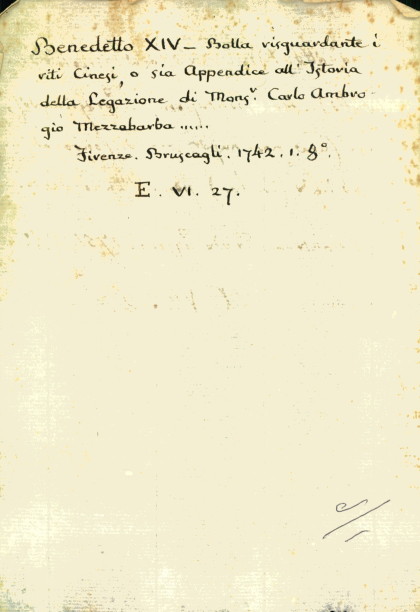 Benedetto XIV — Bolla risguardante i
riti Cinesi, o sia Appendice all' Istoria
della Legazione di Monsr. Carlo Ambro
gio Mezzabarba .....
Firenze. Bruscagli. 1742. 1. 8°.
E. VI. 27.